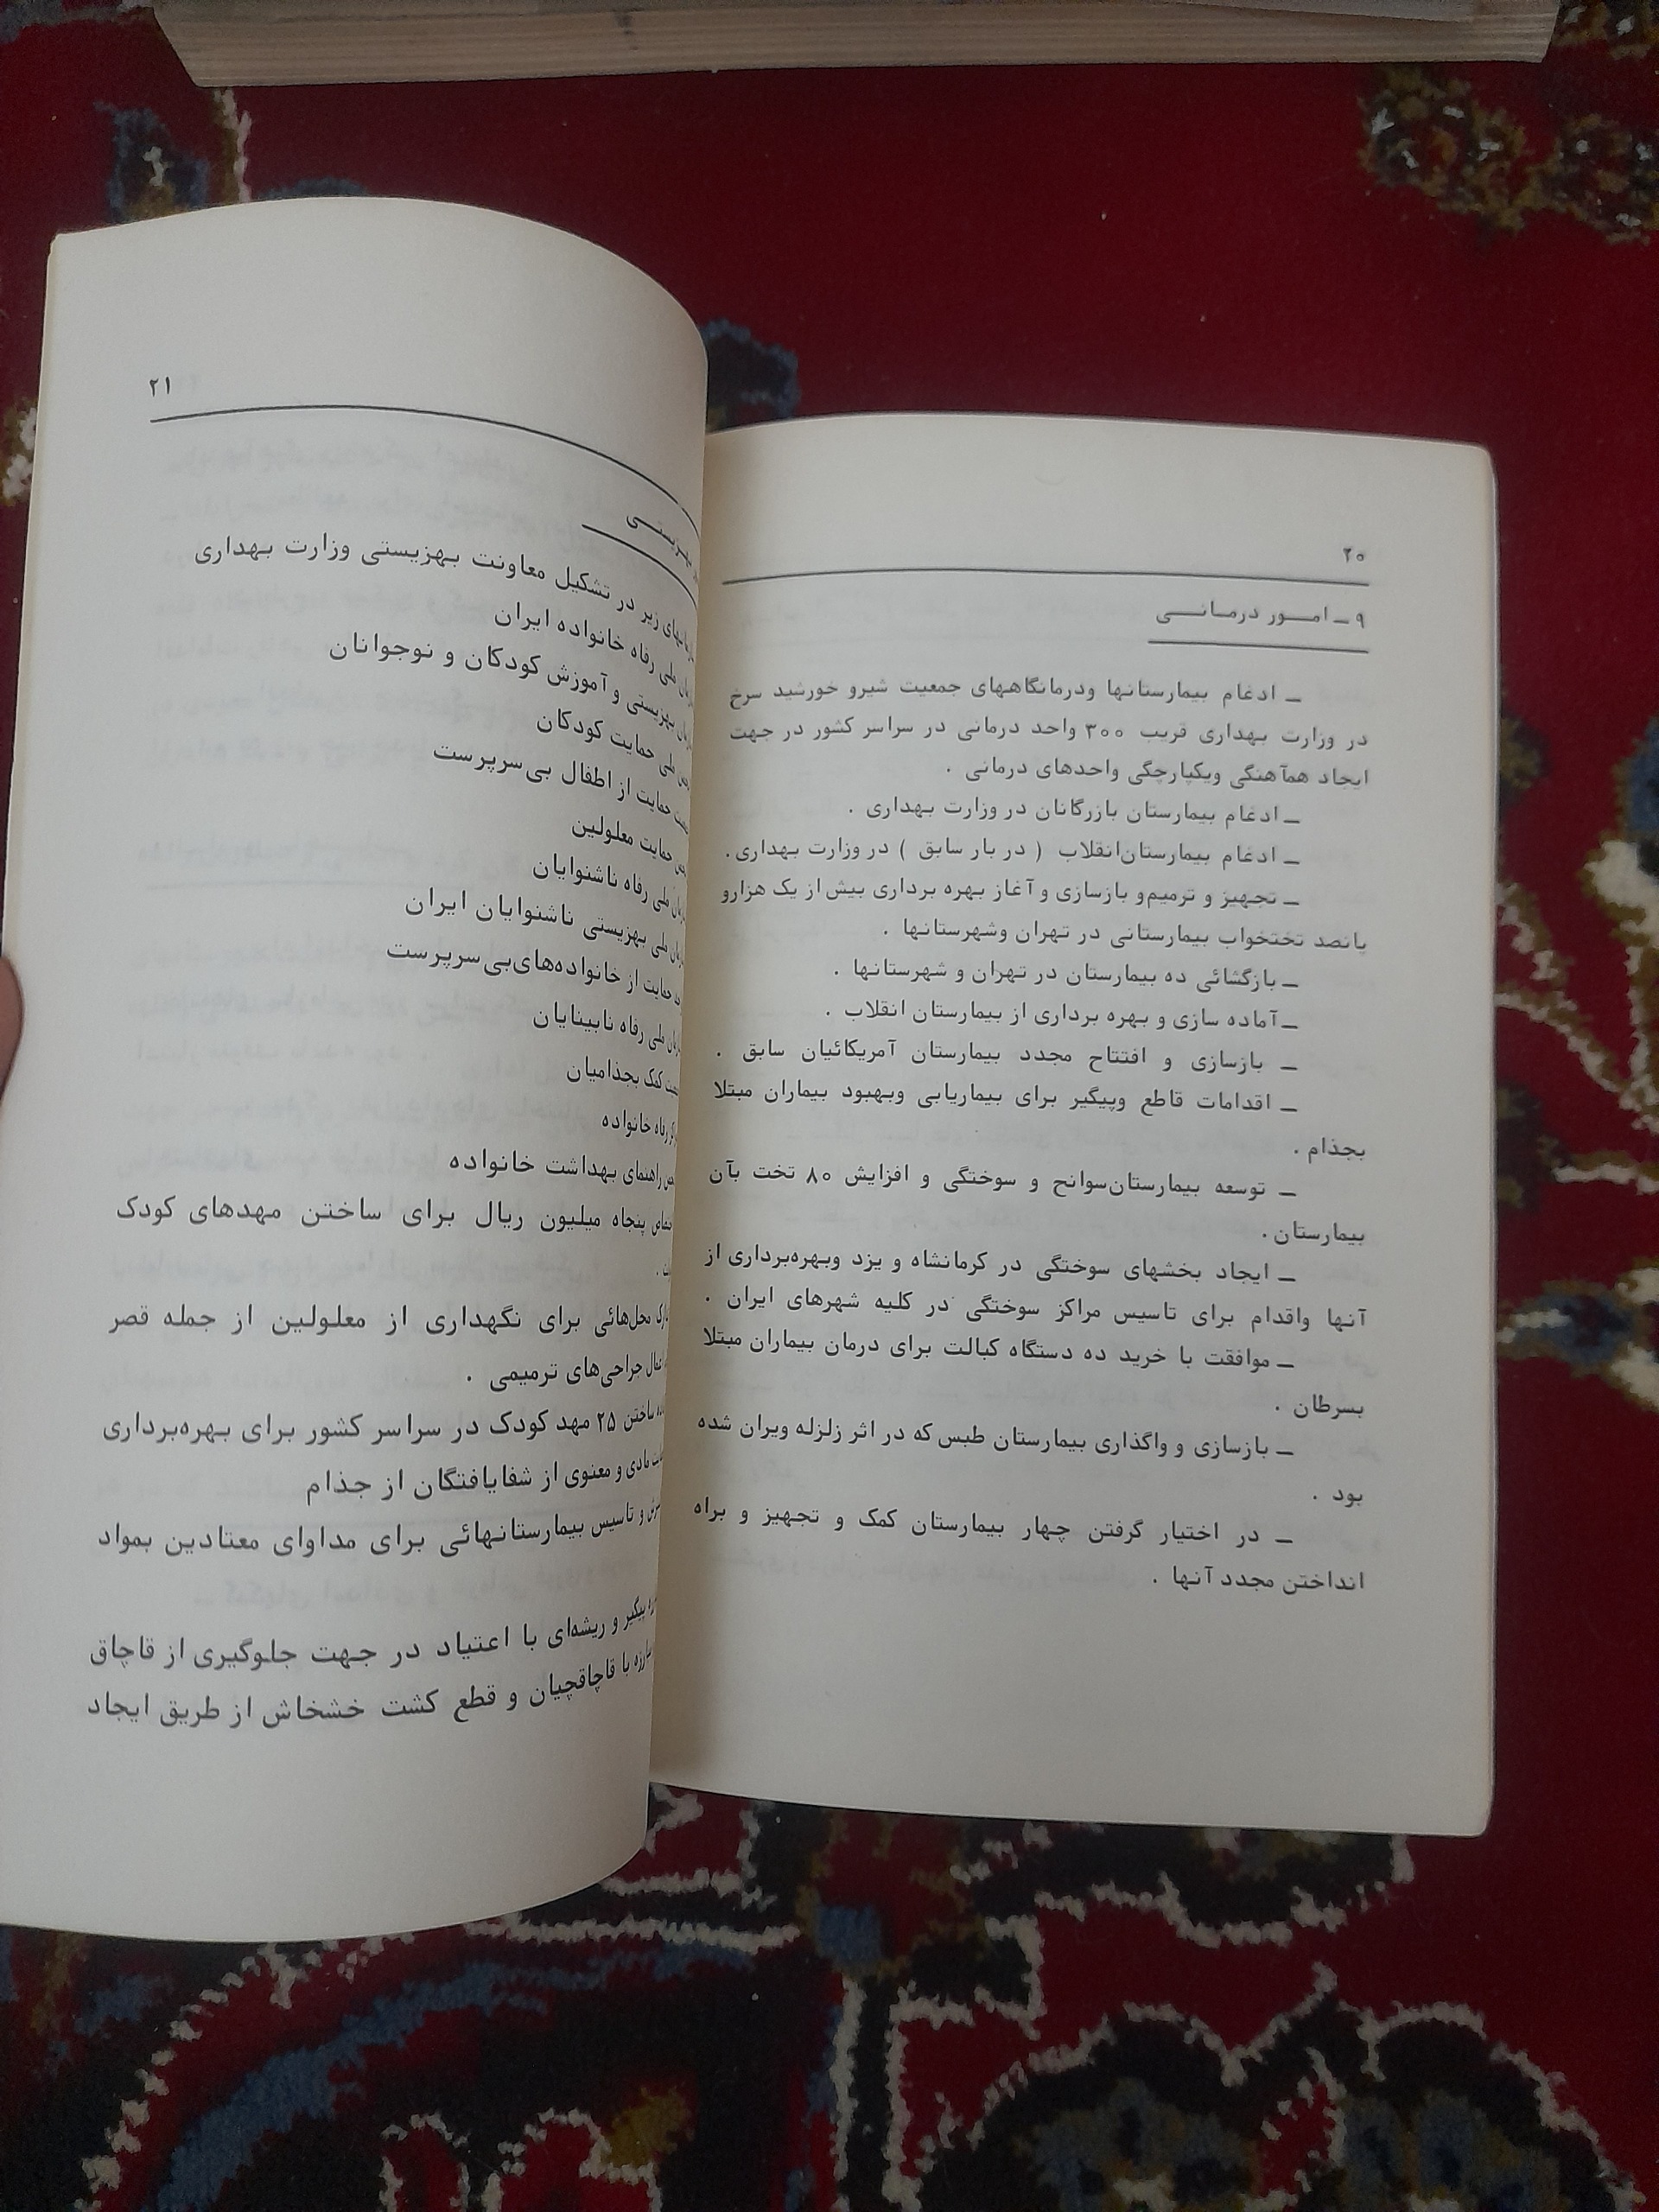 ۲۰
۹ ـ امـــور درمـانـــی
ـ ادغام بیمارستانها ودرمانگاههای جمعیت شیرو خورشید سرخ
در وزارت بهداری قریب ۳۰۰ واحد درمانی در سراسر کشور در جهت
ایجاد همآهنگی ویکپارچگی واحدهای درمانی .
ـ ادغام بیمارستان بازرگانان در وزارت بهداری .
ـ ادغام بیمارستان‌انقلاب ( در بار سابق ) در وزارت بهداری.
ـ تجهیز و ترمیم‌و بازسازی و آغاز بهره برداری بیش از یک هزارو
پانصد تختخواب بیمارستانی در تهران وشهرستانها .
ـ بازگشائی ده بیمارستان در تهران و شهرستانها .
ـ آماده سازی و بهره برداری از بیمارستان انقلاب .
ـ بازسازی و افتتاح مجدد بیمارستان آمریکائیان سابق .
ـ اقدامات قاطع وپیگیر برای بیماریابی وبهبود بیماران مبتلا
بجذام .
ـ توسعه بیمارستان‌سوانح و سوختگی و افزایش ۸۰ تخت بآن
بیمارستان .
ـ ایجاد بخشهای سوختگی در کرمانشاه و یزد وبهره‌برداری از
آنها واقدام برای تاسیس مراکز سوختگی در کلیه شهرهای ایران .
ـ موافقت با خرید ده دستگاه کبالت برای درمان بیماران مبتلا
بسرطان .
ـ بازسازی و واگذاری بیمارستان طبس که در اثر زلزله ویران شده
بود .
ـ در اختیار گرفتن چهار بیمارستان کمک و تجهیز و براه
انداختن مجدد آنها .
۲۱
بهزیستـی
زیر در تشکیل معاونت بهزیستی وزارت بهداری
ملی رفاه خانواده ایران
بهزیستی و آموزش کودکان و نوجوانان
ملی حمایت کودکان
حمایت از اطفال بی‌سرپرست
حمایت معلولین
ملی رفاه ناشنوایان
ملی بهزیستی ناشنوایان ایران
حمایت از خانواده‌های‌بی‌سرپرست
ملی رفاه نابینایان
کمک بجذامیان
رفاه خانواده
راهنمای بهداشت خانواده
پنجاه میلیون ریال برای ساختن مهدهای کودک
محل‌هائی برای نگهداری از معلولین از جمله قصر
جراحی‌های ترمیمی .
ساختن ۲۵ مهد کودک در سراسر کشور برای بهره‌برداری
مادی و معنوی از شفایافتگان از جذام
و تاسیس بیمارستانهائی برای مداوای معتادین بمواد
پیگیر و ریشه‌ای با اعتیاد در جهت جلوگیری از قاچاق
با قاچاقچیان و قطع کشت خشخاش از طریق ایجاد